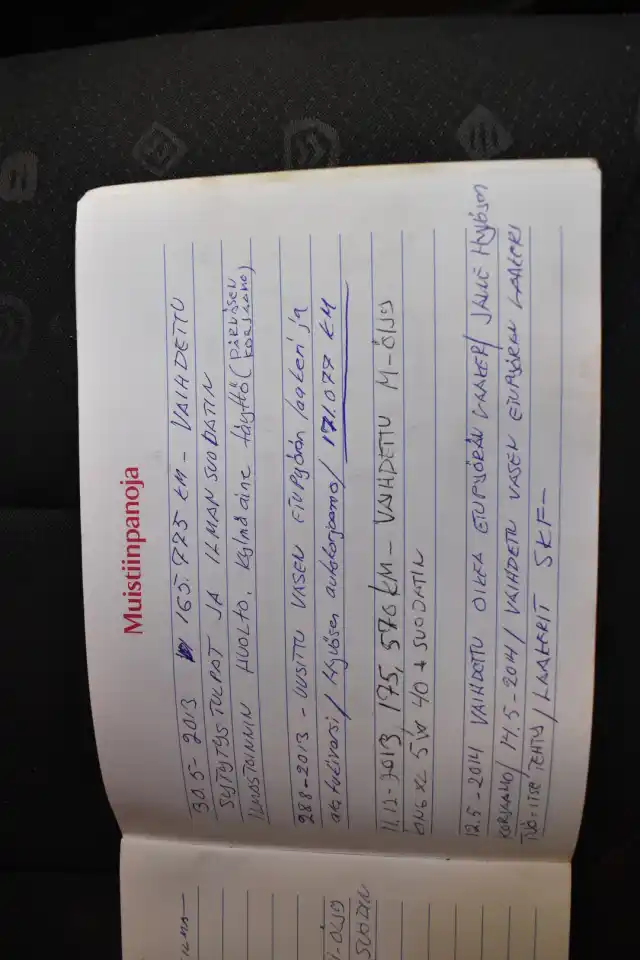 Muistiinpanoja
30.5-2013 165.775 KM - VAIHDETTU
SYTYTYSTULPAT JA ILMANSUODATIN
ILMASTOINNIN HUOLTO. Kylmäaine täyttö (PÄRNÄSEN
KORJAAMO)
28.8-2013 - UUSITTU VASEN ETUPYÖRÄN laakeri ja
ala tukivarsi / Hylösen autokorjaamo / 171.077 KM
11.12-2013, 175,576 KM - VAIHDETTU M-ÖLJY
5W 40 + SUODATIN
12.5-2014 VAIHDETTU OIKEA ETUPYÖRÄN LAAKERI / JANNE Hylösen
KORJAAMO / 14.5-2014 / VAIHDETTU VASEN ETUPYÖRÄN LAAKERI
TYÖ: ITSE TEHTY / LAAKERIT SKF-
ILMA-
-ÖLJY
SUODATIN